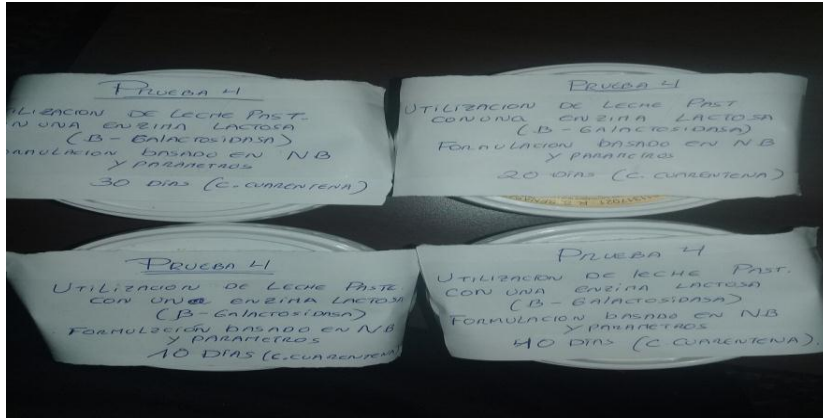 PRUEBA 4
LIZACION DE LECHE PAST.
N UNA ENZIMA LACTOSA
(B - GALACTOSIDASA)
RMULACION BASADO EN NB
Y PARAMETROS
30 DIAS (C. CUARENTENA)
PRUEBA 4
UTILIZACION DE LECHE PAST
CON UNA ENZIMA LACTOSA
(B - GALACTOSIDASA)
FORMULACION BASADO EN NB
Y PARAMETROS
20 DIAS (C. CUARENTENA)
PRUEBA 4
UTILIZACION DE LECHE PASTE
CON UNA ENZIMA LACTOSA
(B - GALACTOSIDASA)
FORMULZCIÓN BASADO EN NB
Y PARAMETROS
10 DIAS (C. CUARENTENA)
PRUEBA 4
UTILIZACION DE LECHE PAST.
CON UNA ENZIMA LACTOSA
(B - GALACTOSIDASA)
FORMULACION BASADO EN NB
Y PARAMETROS
40 DIAS (C CUARENTENA).